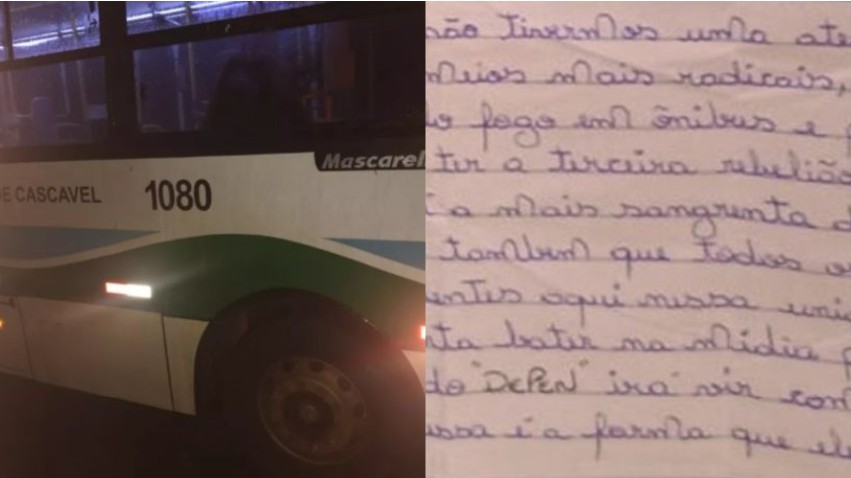 Mascarel
DE CASCAVEL 1080
não tivermos uma ate
meios mais radicais,
do fogo em ônibus e
ter a terceira rebelião
a mais sangrenta d
também que todos o
entes aqui nessa unid
ta bater na mídia p
do "DEPEN" irá vir com
ssa é a forma que ele